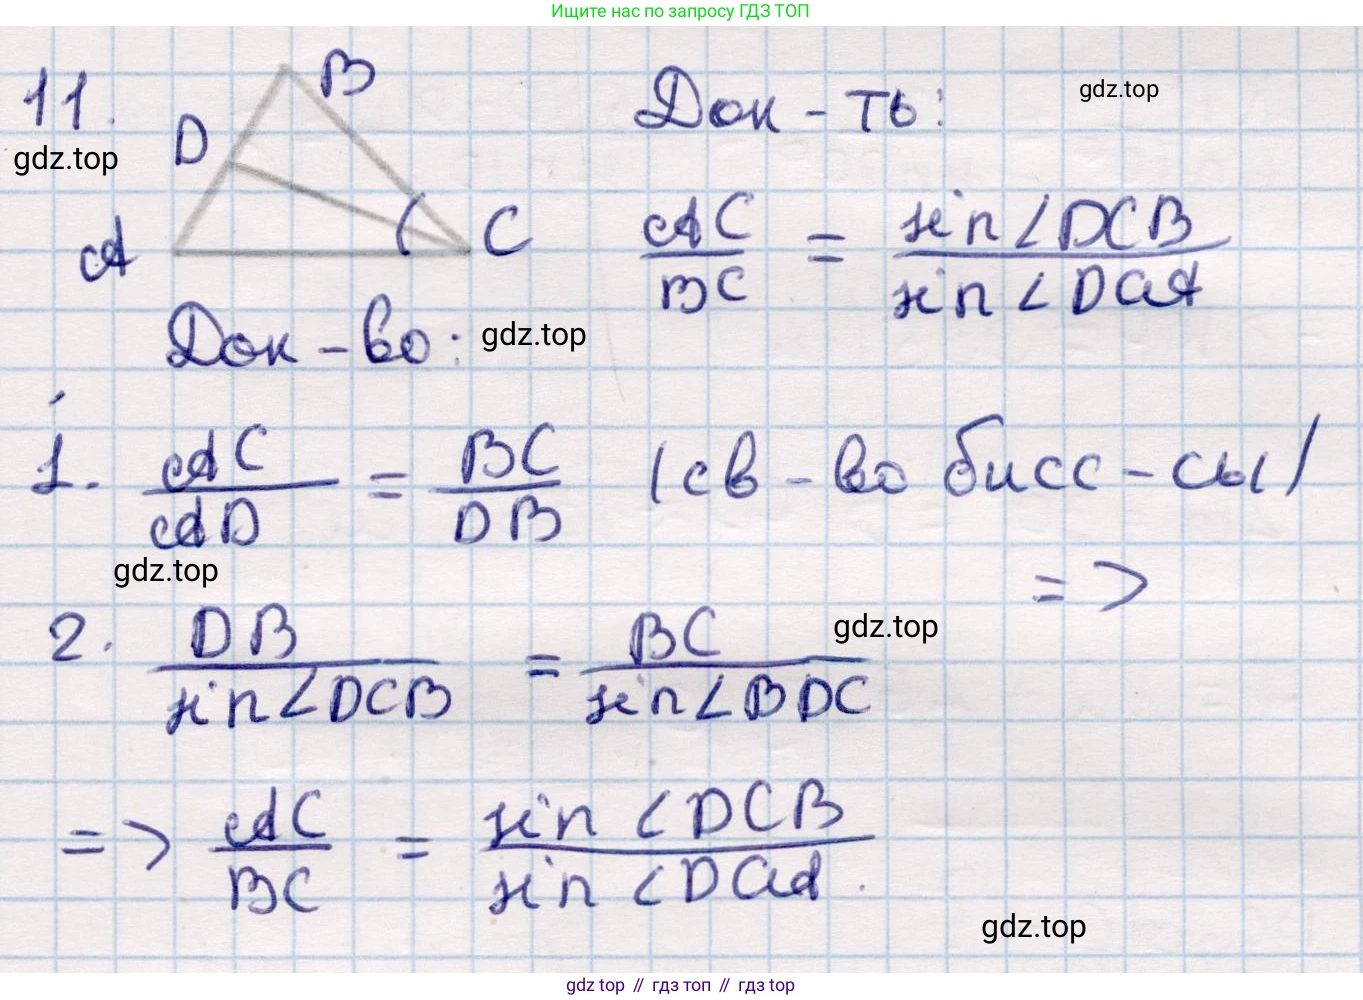 Ищите нас по запросу ГДЗ ТОП
11.
B
Док-ть:
gdz.top
D
gdz.top
A
C
AC/BC = sin∠DCB/sin∠DCA
Док-во:
gdz.top
1. AC/AD = BC/DB (св-во бисс-сы)
=>
gdz.top
2. DB/sin∠DCB = BC/sin∠BDC
gdz.top
=> AC/BC = sin∠DCB/sin∠DCA.
gdz.top
gdz.top // гдз топ // гдз top